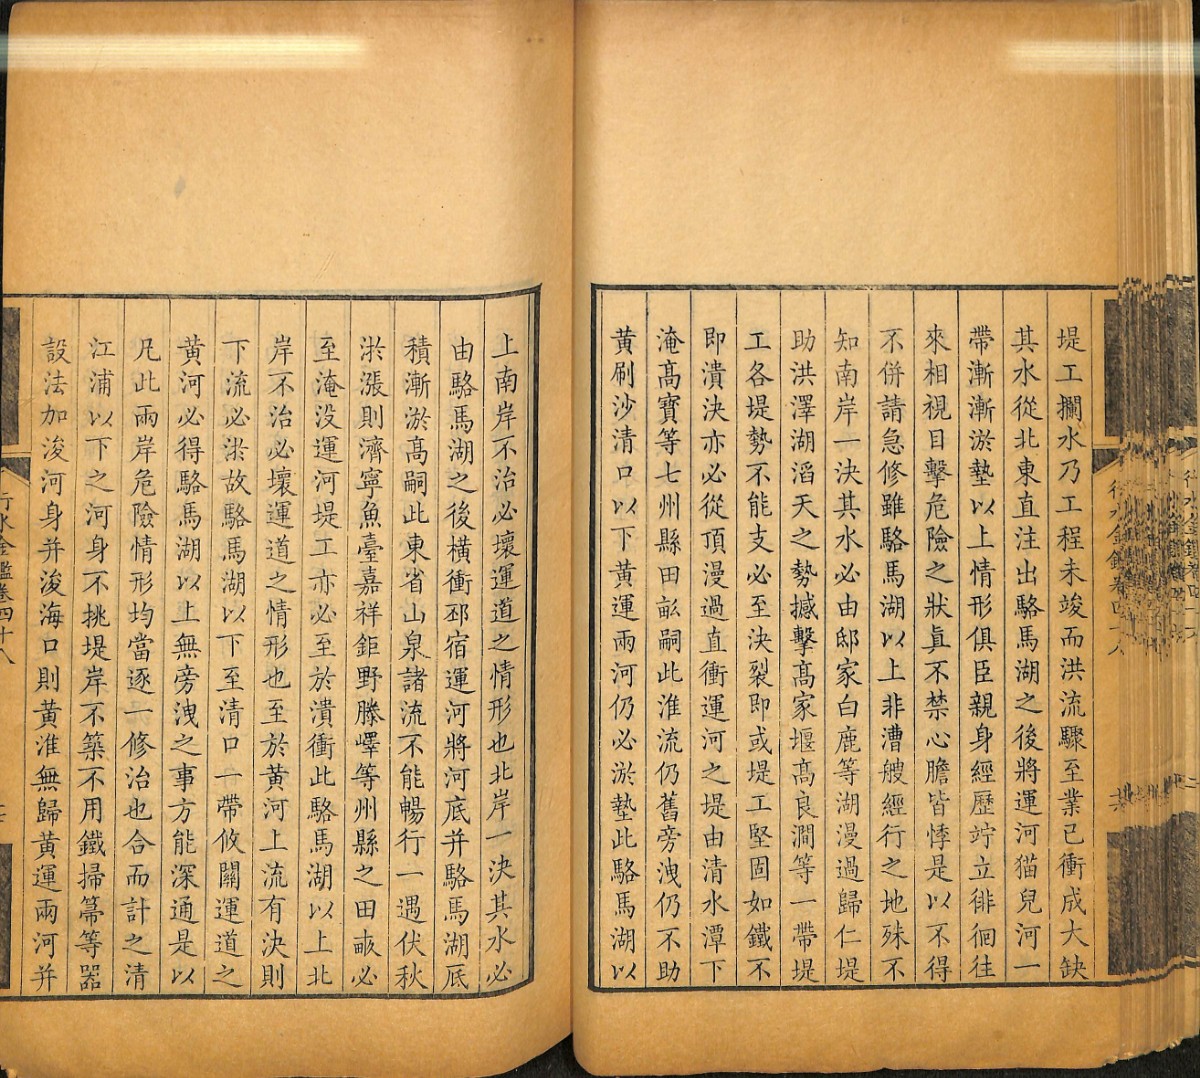 堤工攔水乃工程未竣而洪流驟至業已衝成大缺
其水從北東直注出駱馬湖之後將運河猫兒河一
帶漸漸淤墊以上情形俱臣親身經歷竚立徘徊往
來相視目擊危險之狀眞不禁心膽皆悸是以不得
不併請急修雖駱馬湖以上非漕艘經行之地殊不
知南岸一決其水必由邸家白鹿等湖漫過歸仁堤
助洪澤湖滔天之勢撼擊髙家堰髙良澗等一帶堤
工各堤勢不能支必至決裂即或堤工堅固如鐵不
即潰決亦必從頂漫過直衝運河之堤由清水潭下
淹髙寶等七州縣田畝嗣此淮流仍舊旁洩仍不助
黄刷沙清口以下黄運兩河仍必淤墊此駱馬湖以
上南岸不治必壞運道之情形也北岸一決其水必
由駱馬湖之後橫衝邳宿運河將河底并駱馬湖底
積漸淤髙嗣此東省山泉諸流不能暢行一遇伏秋
淤漲則濟寧魚臺嘉祥鉅野滕嶧等州縣之田畝必
至淹没運河堤工亦必至於潰衝此駱馬湖以上北
岸不治必壞運道之情形也至於黄河上流有決則
下流必淤故駱馬湖以下至清口一帶攸關運道之
黄河必得駱馬湖以上無旁洩之事方能深通是以
凡此兩岸危險情形均當逐一修治也合而計之清
江浦以下之河身不挑堤岸不築不用鐵掃箒等器
設法加浚河身并浚海口則黄淮無歸黄運兩河并
行水金鑑卷四十八